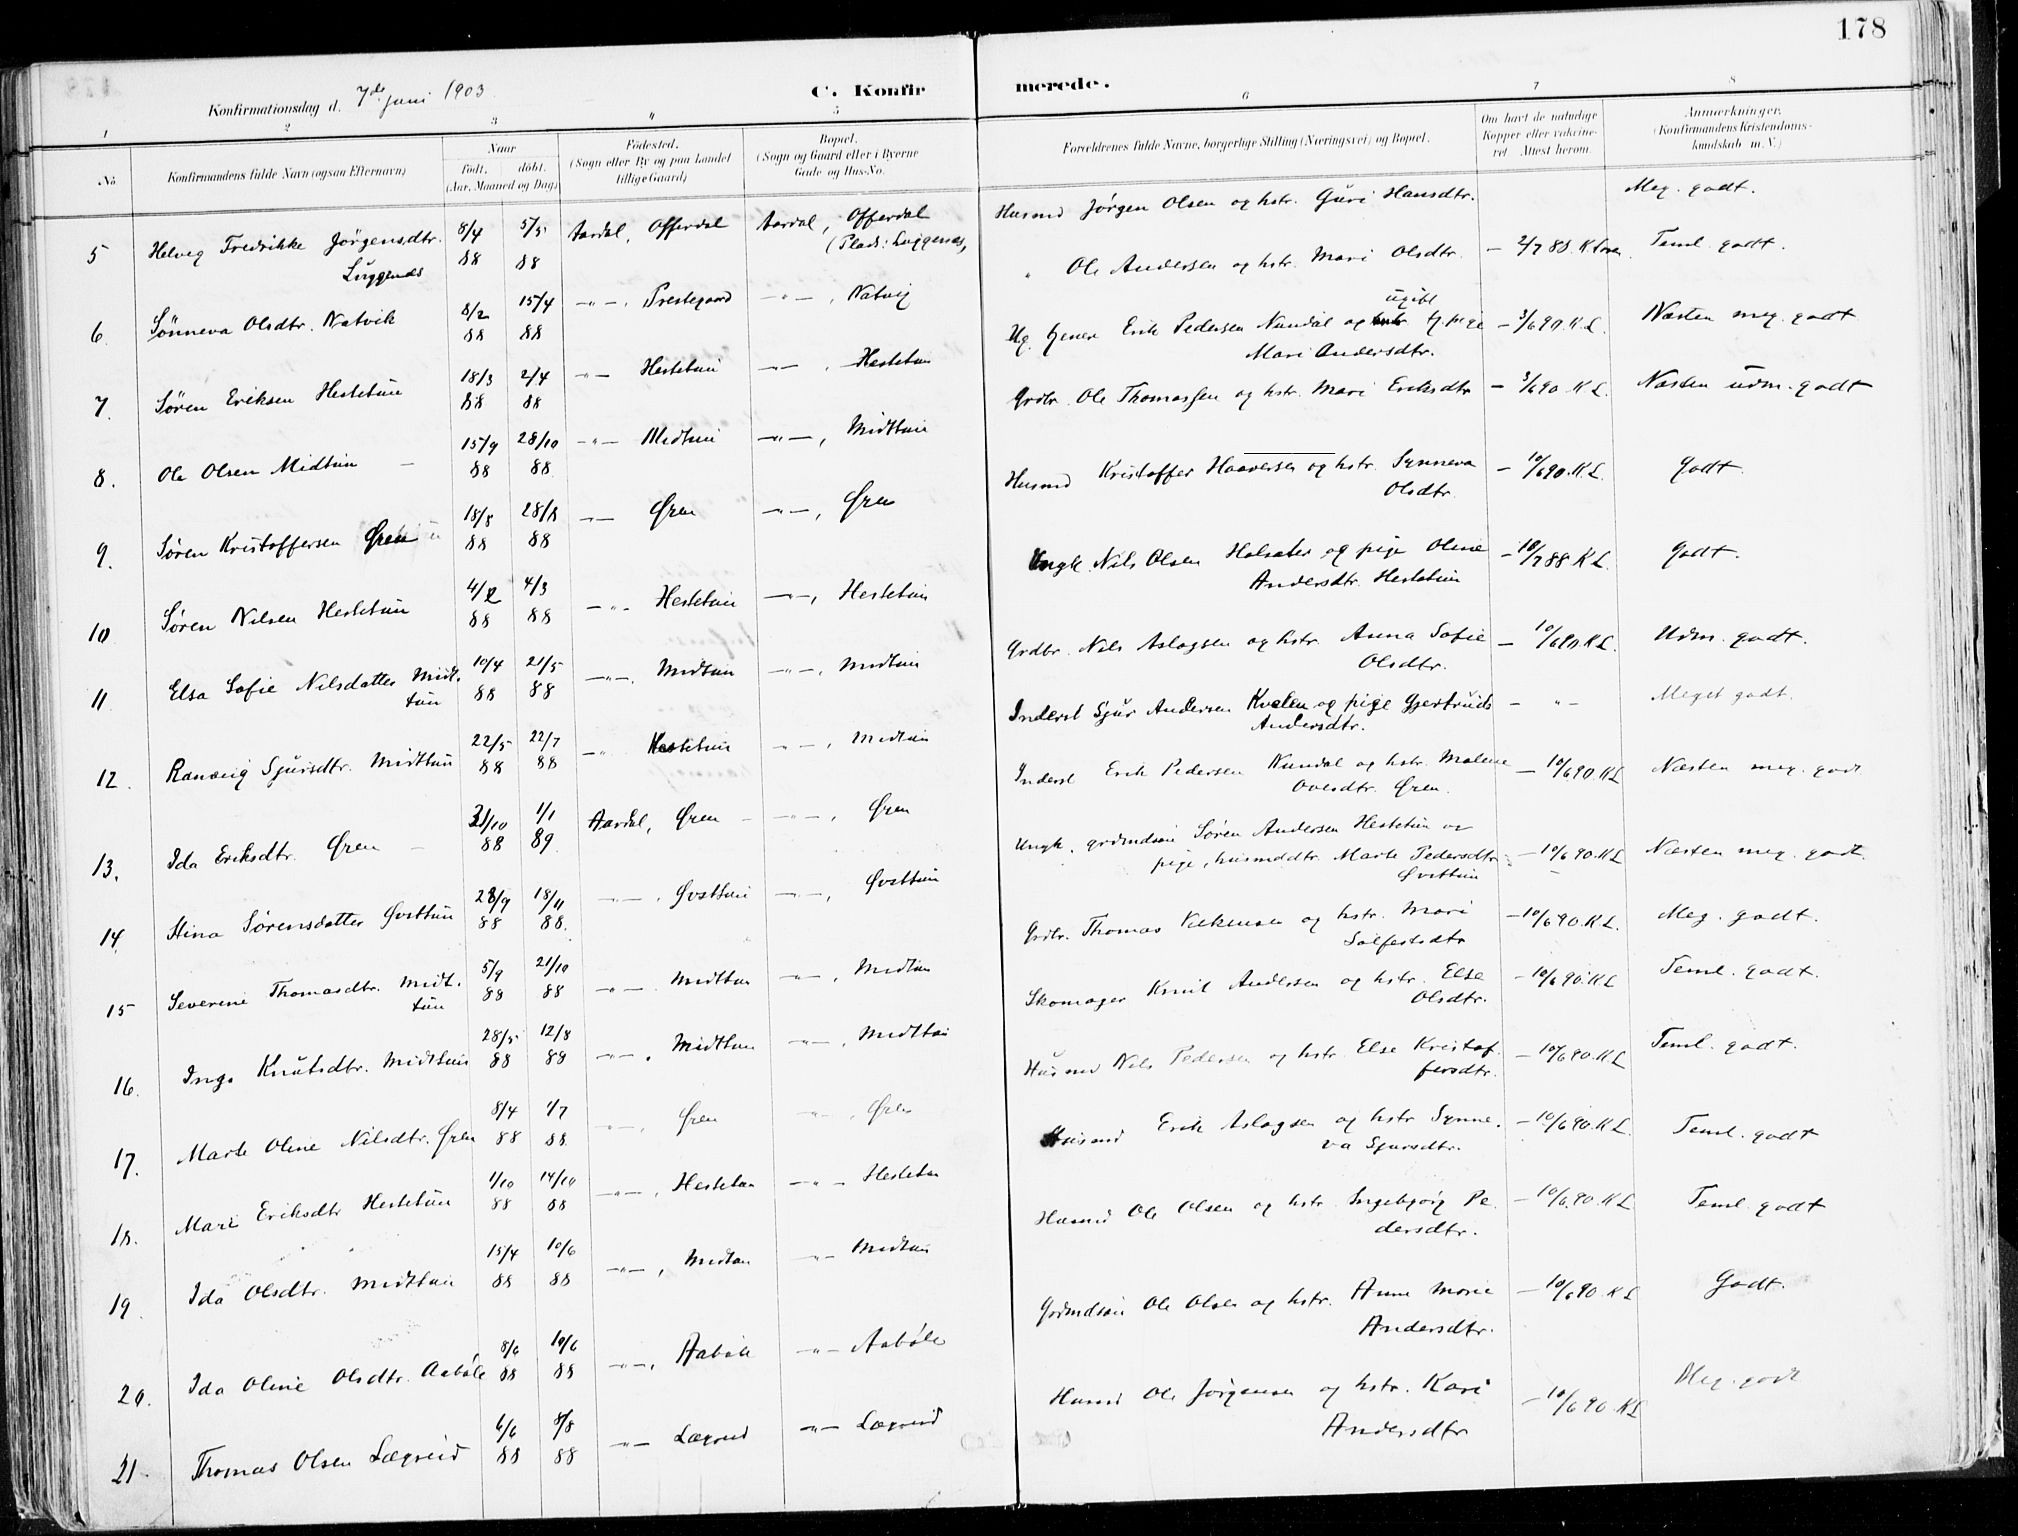 178
Konfirmationsdag d. 7de juni 1903
C. Konfirmerede.
1 2 3 4 5 6 7 8
No.
Konfirmandens fulde Navn (ogsaa Efternavn)
Naar
födt. döbt.
(Aar, Maaned og Dag)
Födested.
(Sogn eller By og paa Landet
tillige Gaard)
Bopæl.
(Sogn og Gaard eller i Byerne
Gade og Hus-No.
Forældrenes fulde Navne, borgerlige Stilling (Næringsvei) og Bopæl.
Om havt de naturlige
Kopper eller vaccine-
ret Attest herom.
Anmærkninger.
(Konfirmandens Kristendoms-
kundskab m. V.)
5 Helveg Fredrikke Jörgensdtr. 8/4 88 5/5 88 Aardal, Offerdal Aardal, Offerdal Husmd Jørgen Olsen og hstr. Guri Hansdtr. Meg. godt.
Luggenes (Plads: Luggenes,
6. Sönneva Olsdtr. Natvik 8/2 88 15/4 88 -"-, Prestegaard -"-, Natvig " Ole Andersen og hstr. Mari Olsdtr. - 2/7 88. Teml. godt.
7. Søren Eriksen Hestetun 18/3 88 2/4 88 -"- Hestetun -"-, Hestetun Ug. tjener Erik Pedersen Nundal og ugift tj. pige - 3/6 90. K.L. Næsten meg. godt
Mari Andersdtr.
8. Ole Olsen Midtun 15/9 88 28/10 88 -"- Midtun -"-, Midttun Grdbr. Ole Thomassen og hstr. Mari Eriksdtr - 3/6 90 K.L. Næsten udm. godt
9. Søren Kristoffersen Øren 18/8 88 28/8 88 -"- Øren -"-, Øren Husmd Kristoffer Haaversen og hstr. Synneva - 10/6 90. K.L. Godt.
Olsdtr.
10 Søren Nilsen Hestetun 4/2 88 4/3 88 -"- Hestetun -"-, Hestetun Ungk. Nils Olsen Holsæter og pige Oline - 18/7 88 K L. Godt.
Andersdtr. Hestetun
11 Elsa Sofie Nilsdatter Midt- 10/4 88 21/5 88 -"-, Midttun -"-, Midttun Grdbr. Nils Aslagsen og hstr. Anna Sofie - 10/6 90 K L. Udm. godt.
tun Olsdtr.
12. Ranveig Sjursdtr. Midttun 22/5 88 22/7 88 -"- Hestetun -"-, Midttun Inderst Sjur Andersen Kvalen og pige Gjertrud - "- Meget godt.
Andersdtr.
13. Ida Eriksdtr. Øren 31/10 88 1/1 89 Aardal, Øren -"-, Øren Inderst Erik Pedersen Nundal og hstr. Malene - 10/6 90. K L Næsten meg. godt
Ovesdtr. Øren.
14. Stina Sørensdatter Øvsttun 28/9 88 18/11 88. -"-, Øvsttun -"-, Øvsttun Ungk. grdmdsøn Søren Andersen Hestetun og
pige, husmddtr. Marte Pedersdtr. - 10/6 90. K L Næsten meg. godt.
Øvsttun
15 Severine Thomasdtr. Midt- 5/9 88 21/10 88 -"-. Midttun -"-, Midttun Grdbr. Thomas og hstr. Mari - 10/6 90. K L. Meg. godt.
tun Salfestsdtr
16. Inga Knutsdtr. Midttun 28/5 88 12/8 88 -"-. Midttun -"-, Midttun Skomager Knut Andersen og hstr. Else - 10/6 90. K L Teml. godt.
Olsdtr.
17. Marte Oline Nilsdtr. Øren 8/4 88 1/7 88. -"-, Øren -"-, Øren Husmd Nils Pedersen og hstr. Else Kristof- - 10/6 90. K L Teml. godt.
fersdtr.
18. Mari Eriksdtr Hestetun 1/10 88 14/10 88 -"-, Hestetun -"- Hestetun Husmd Erik Aslagsen og hstr Synne- - 10/6 90. K L. Teml. godt
va Sjursdtr.
19. Ida Olsdtr. Midttun 15/4 88 10/6 88 -"-, Midtun -"- Midttun Husmd Ole Olsen og hstr. Ingebjørg Pe- - 10/6 90. K L Teml. godt
dersdtr.
20. Ida Oline Olsdtr. Aabøle 8/6 88 10/6 88 -"-, Aabøle -"- Aabøle Grdmdsøn Ole Olsen og hstr. Anne Marie - 10/6 90. K L Godt.
Andersdtr.
21. Thomas Olsen Lægreid 6/6 88 8/8 88 -"- Lægreid -"- Lægreid Husmd Ole Jørgensen og hstr. Kari - 10/6 90. K L Meg. godt
Andersdtr